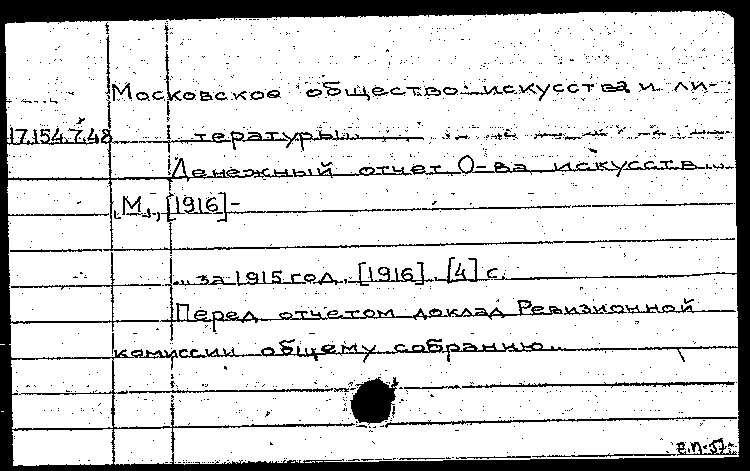 Московское общество искусства и ли-
17.154.7.48 тературы.
Денежный отчет О-ва искусств...
М., [1916]-
... за 1915 год. [1916]. [4] с.
Перед отчетом доклад Ревизионной
комиссии общему собранию.